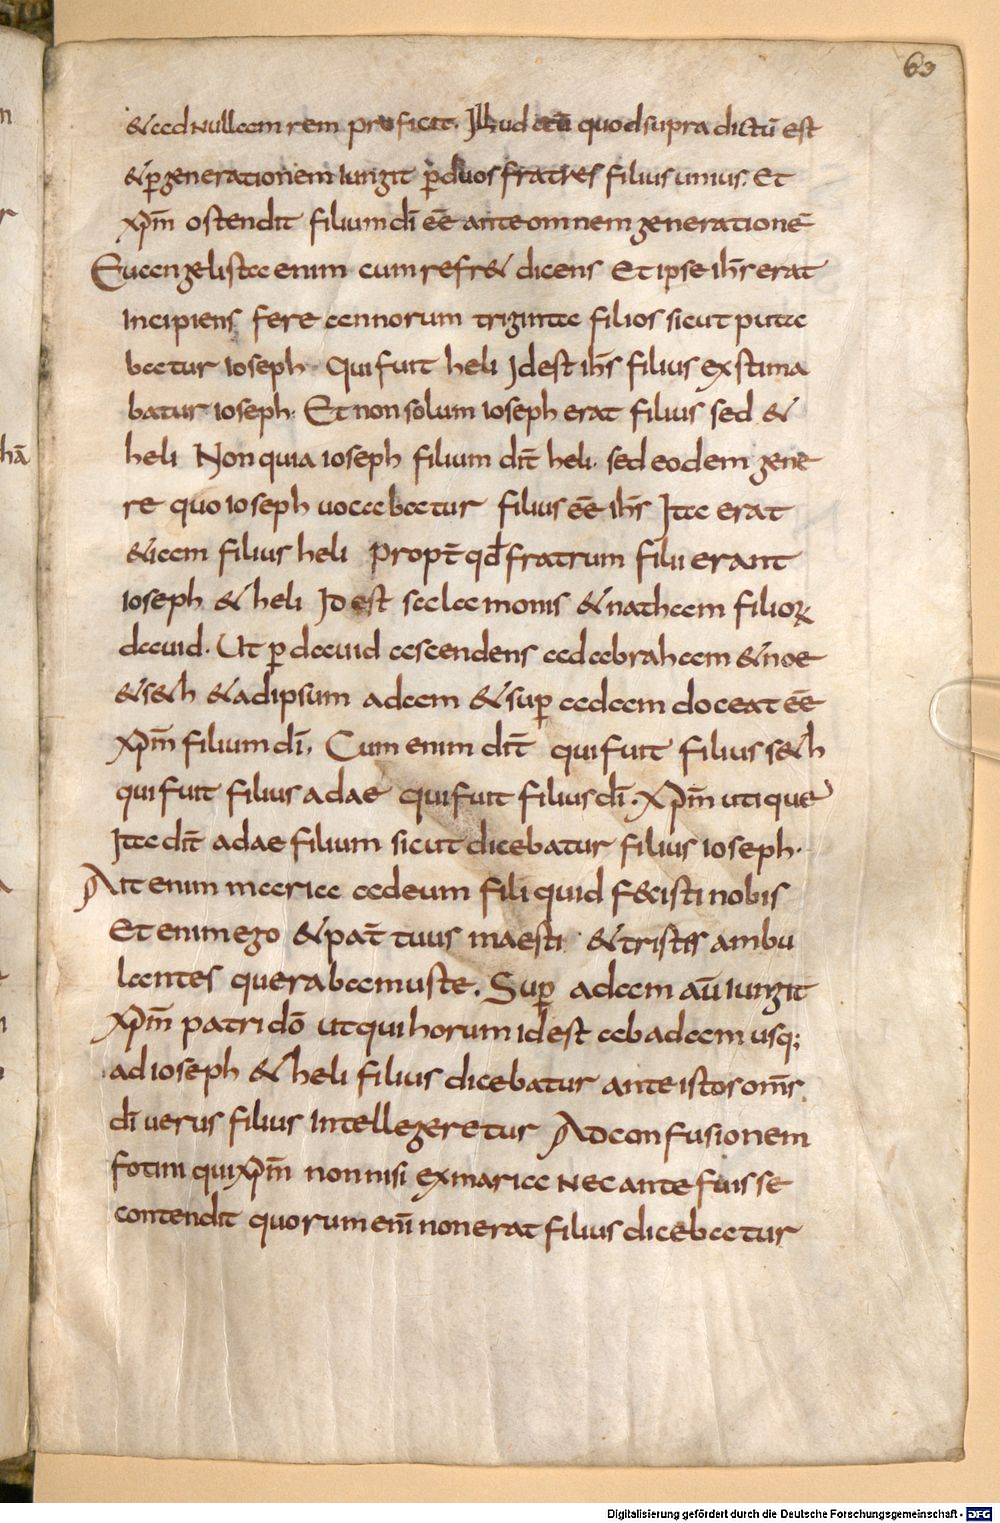 63
& ad nullam rem proficit. Illud aut̄ quod supra dictū est
& p̄ generationem iungit p̄ duos fratres filius unius. Et
xp̄m ostendit filium dī eē ante omnem generationē
Euangelista enim cum refr& dicens Et ipse ih̄s erat
incipiens fere annorum triginta filios sicut puta
batur ioseph. Qui fuit heli Idest ih̄s filius exstima
batur ioseph. Et non solum ioseph erat filius sed &
heli Non quia ioseph filium dīt heli. sed eodem gene
re quo ioseph uocabatur filius eē ih̄s Ita erat
&iam filius heli propt̄ qđ fratrum filii erant
ioseph & heli Idest salamonis & natham filioꝝ
dauid. Ut p̄ dauid ascendens ad abraham & noe
& s&h & ad ipsum adam & sup̄ adam doceat eē
xp̄m filium dī. Cum enim dīt qui fuit filius s&h
qui fuit filius adae qui fuit filius dī. xp̄m utique
Ita dīt adae filium sicut dicebatur filius ioseph.
Ait enim maria ad eum fili quid f&cisti nobis
Et enim ego & pat̄ tuus maesti & tristes ambu
lantes querabamus te. Sup̄ adam aū iungit
xp̄m patri dō ut qui horum idest ab adam usq;
ad ioseph & heli filius dicebatur ante istos om̄s
dī uerus filius intellegeretur Ad confusionem
fotini qui xp̄m non nisi ex maria nec ante fuisse
contendit quorum enī non erat filius dicebatur
Digitalisierung gefördert durch die Deutsche Forschungsgemeinschaft - DFG